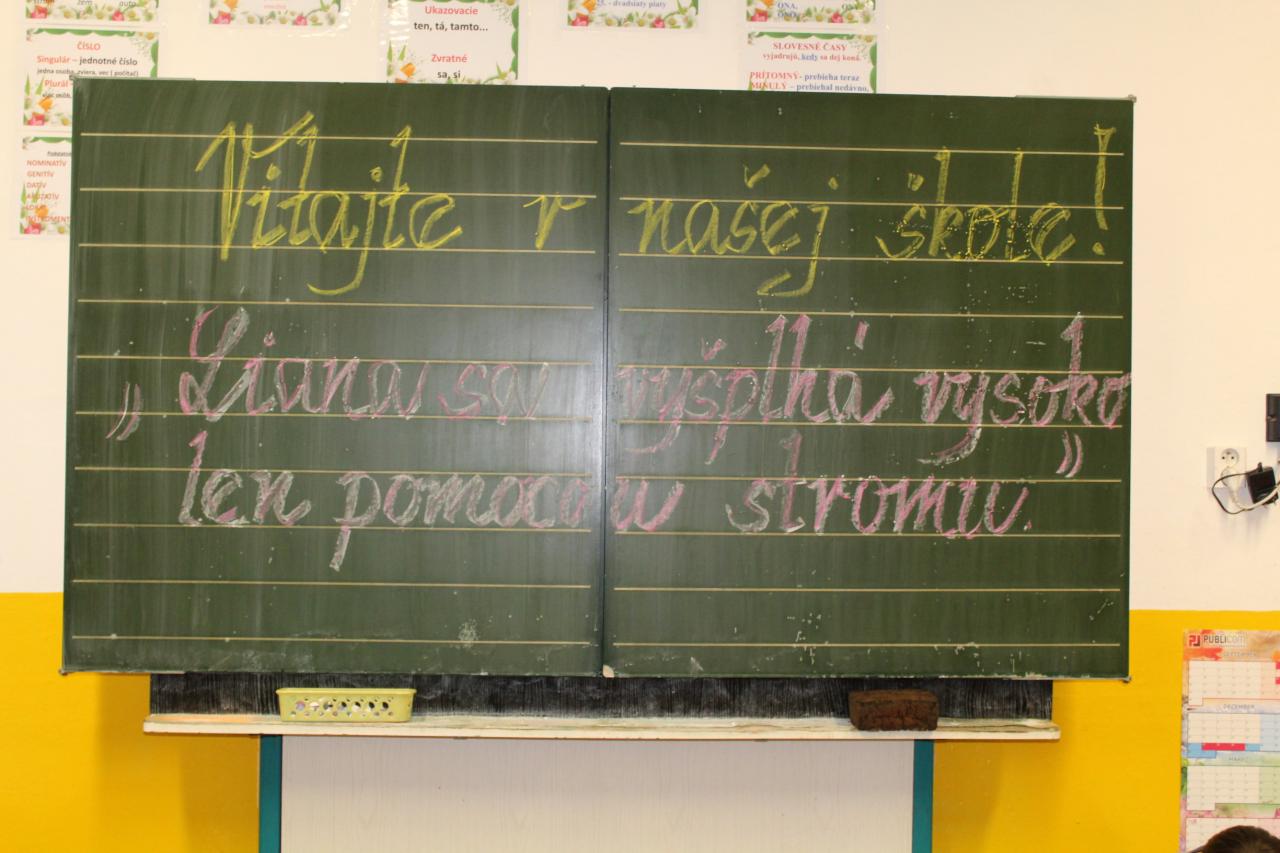 Ukazovacie
ten, tá, tamto...
Zvratné
sa, si
23. - dvadsiaty piaty
ONA,
ONO,
ČÍSLO
Singulár – jednotné číslo
jedna osoba, zviera, vec ( počítač)
Plurál
SLOVESNÉ ČASY
vyjadrujú, kedy sa dej koná.
PRÍTOMNÝ- prebieha teraz
MINULÝ – prebiehal nedávno,
NOMINATÍV
GENITÍV
DATÍV
AKUZATÍV
LOKÁL
INŠTRUMENT
Vitajte v našej škole!
„Liana sa vyšplhá vysoko
len pomocou stromu.”
PUBLICOM
SEPTEMBER
DECEMBER